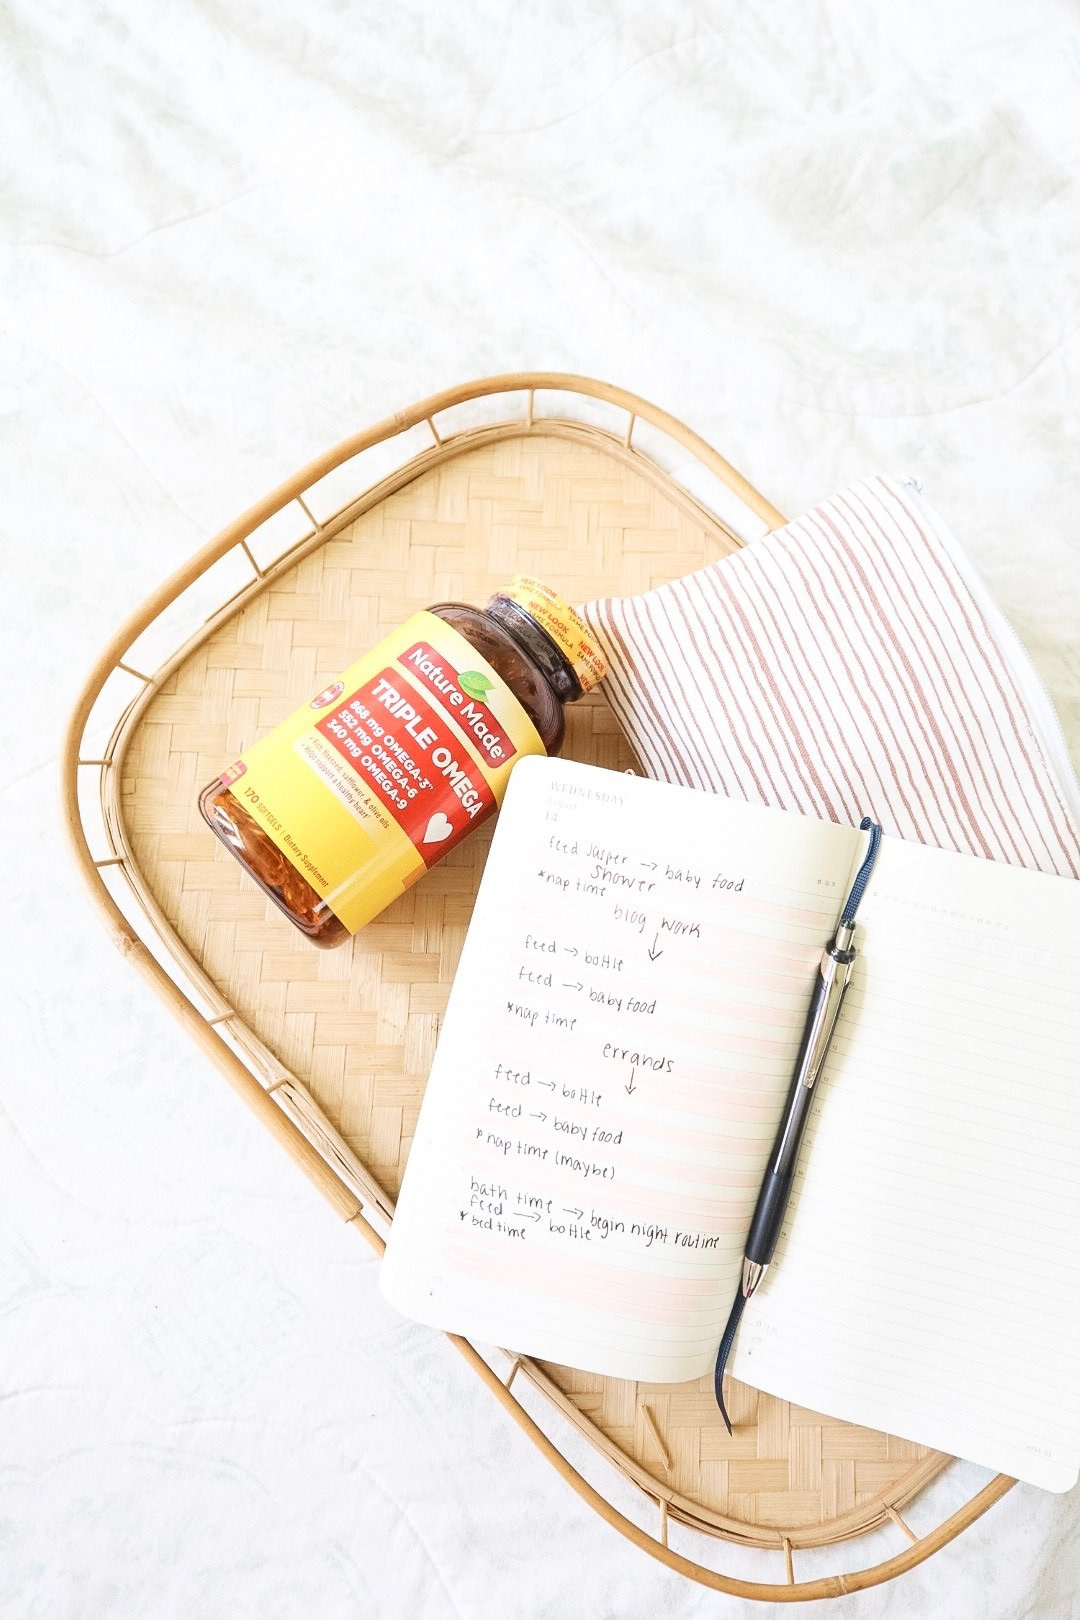 NEW LOOK
SAME FORMULA
NEW LOOK
SAME FORMULA
NEW LOOK
Nature Made
TRIPLE OMEGA
868 mg OMEGA-3
552 mg OMEGA-6
340 mg OMEGA-9
fish, flaxseed, safflower, & olive oils
Helps support a healthy heart
170 SOFTGELS | Dietary Supplement
WEDNESDAY
August
14
feed Jasper → baby food
Shower
*nap time
blog work
↓
feed → bottle
feed → baby food
*nap time
errands
↓
feed → bottle
feed → baby food
*nap time (maybe)
bath time → begin night routine
feed → bottle
*bed time